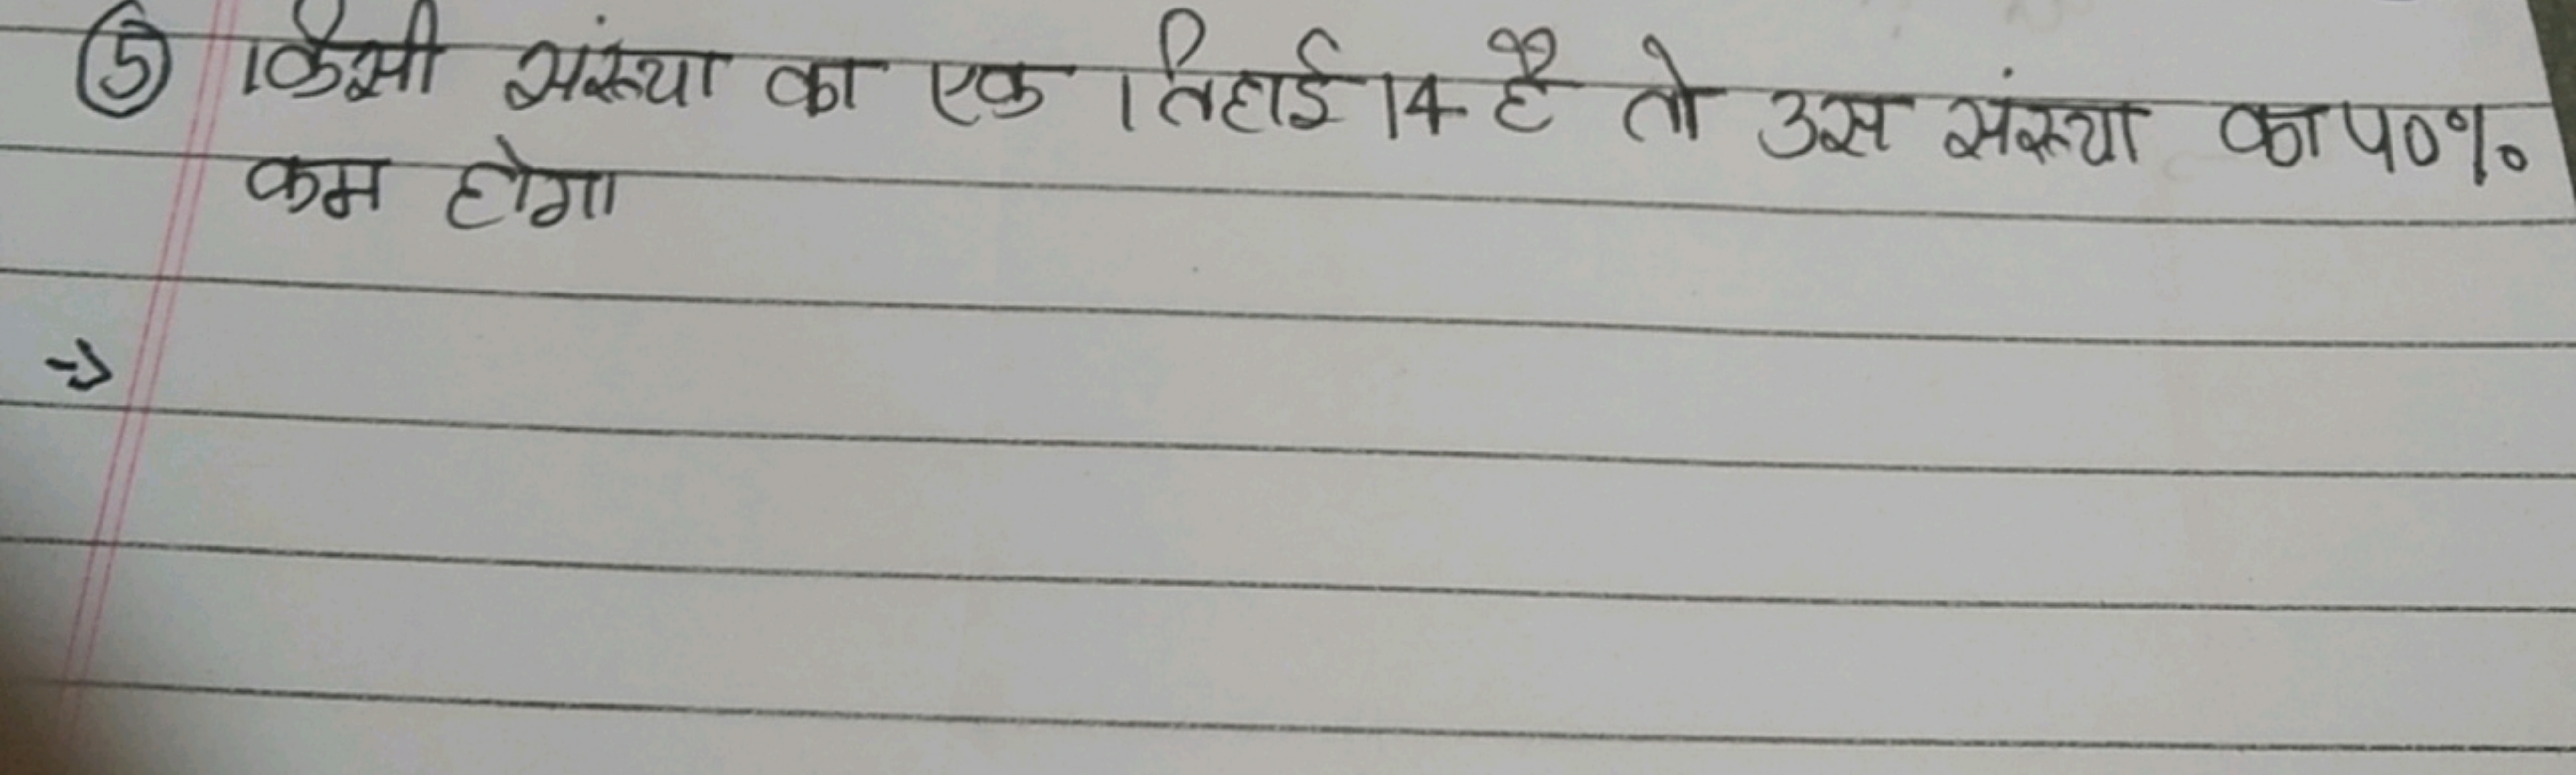 ⑤ किसी संख्या का एक तिहाई 14 है तो उस संख्या का 40%
कम होगा
→